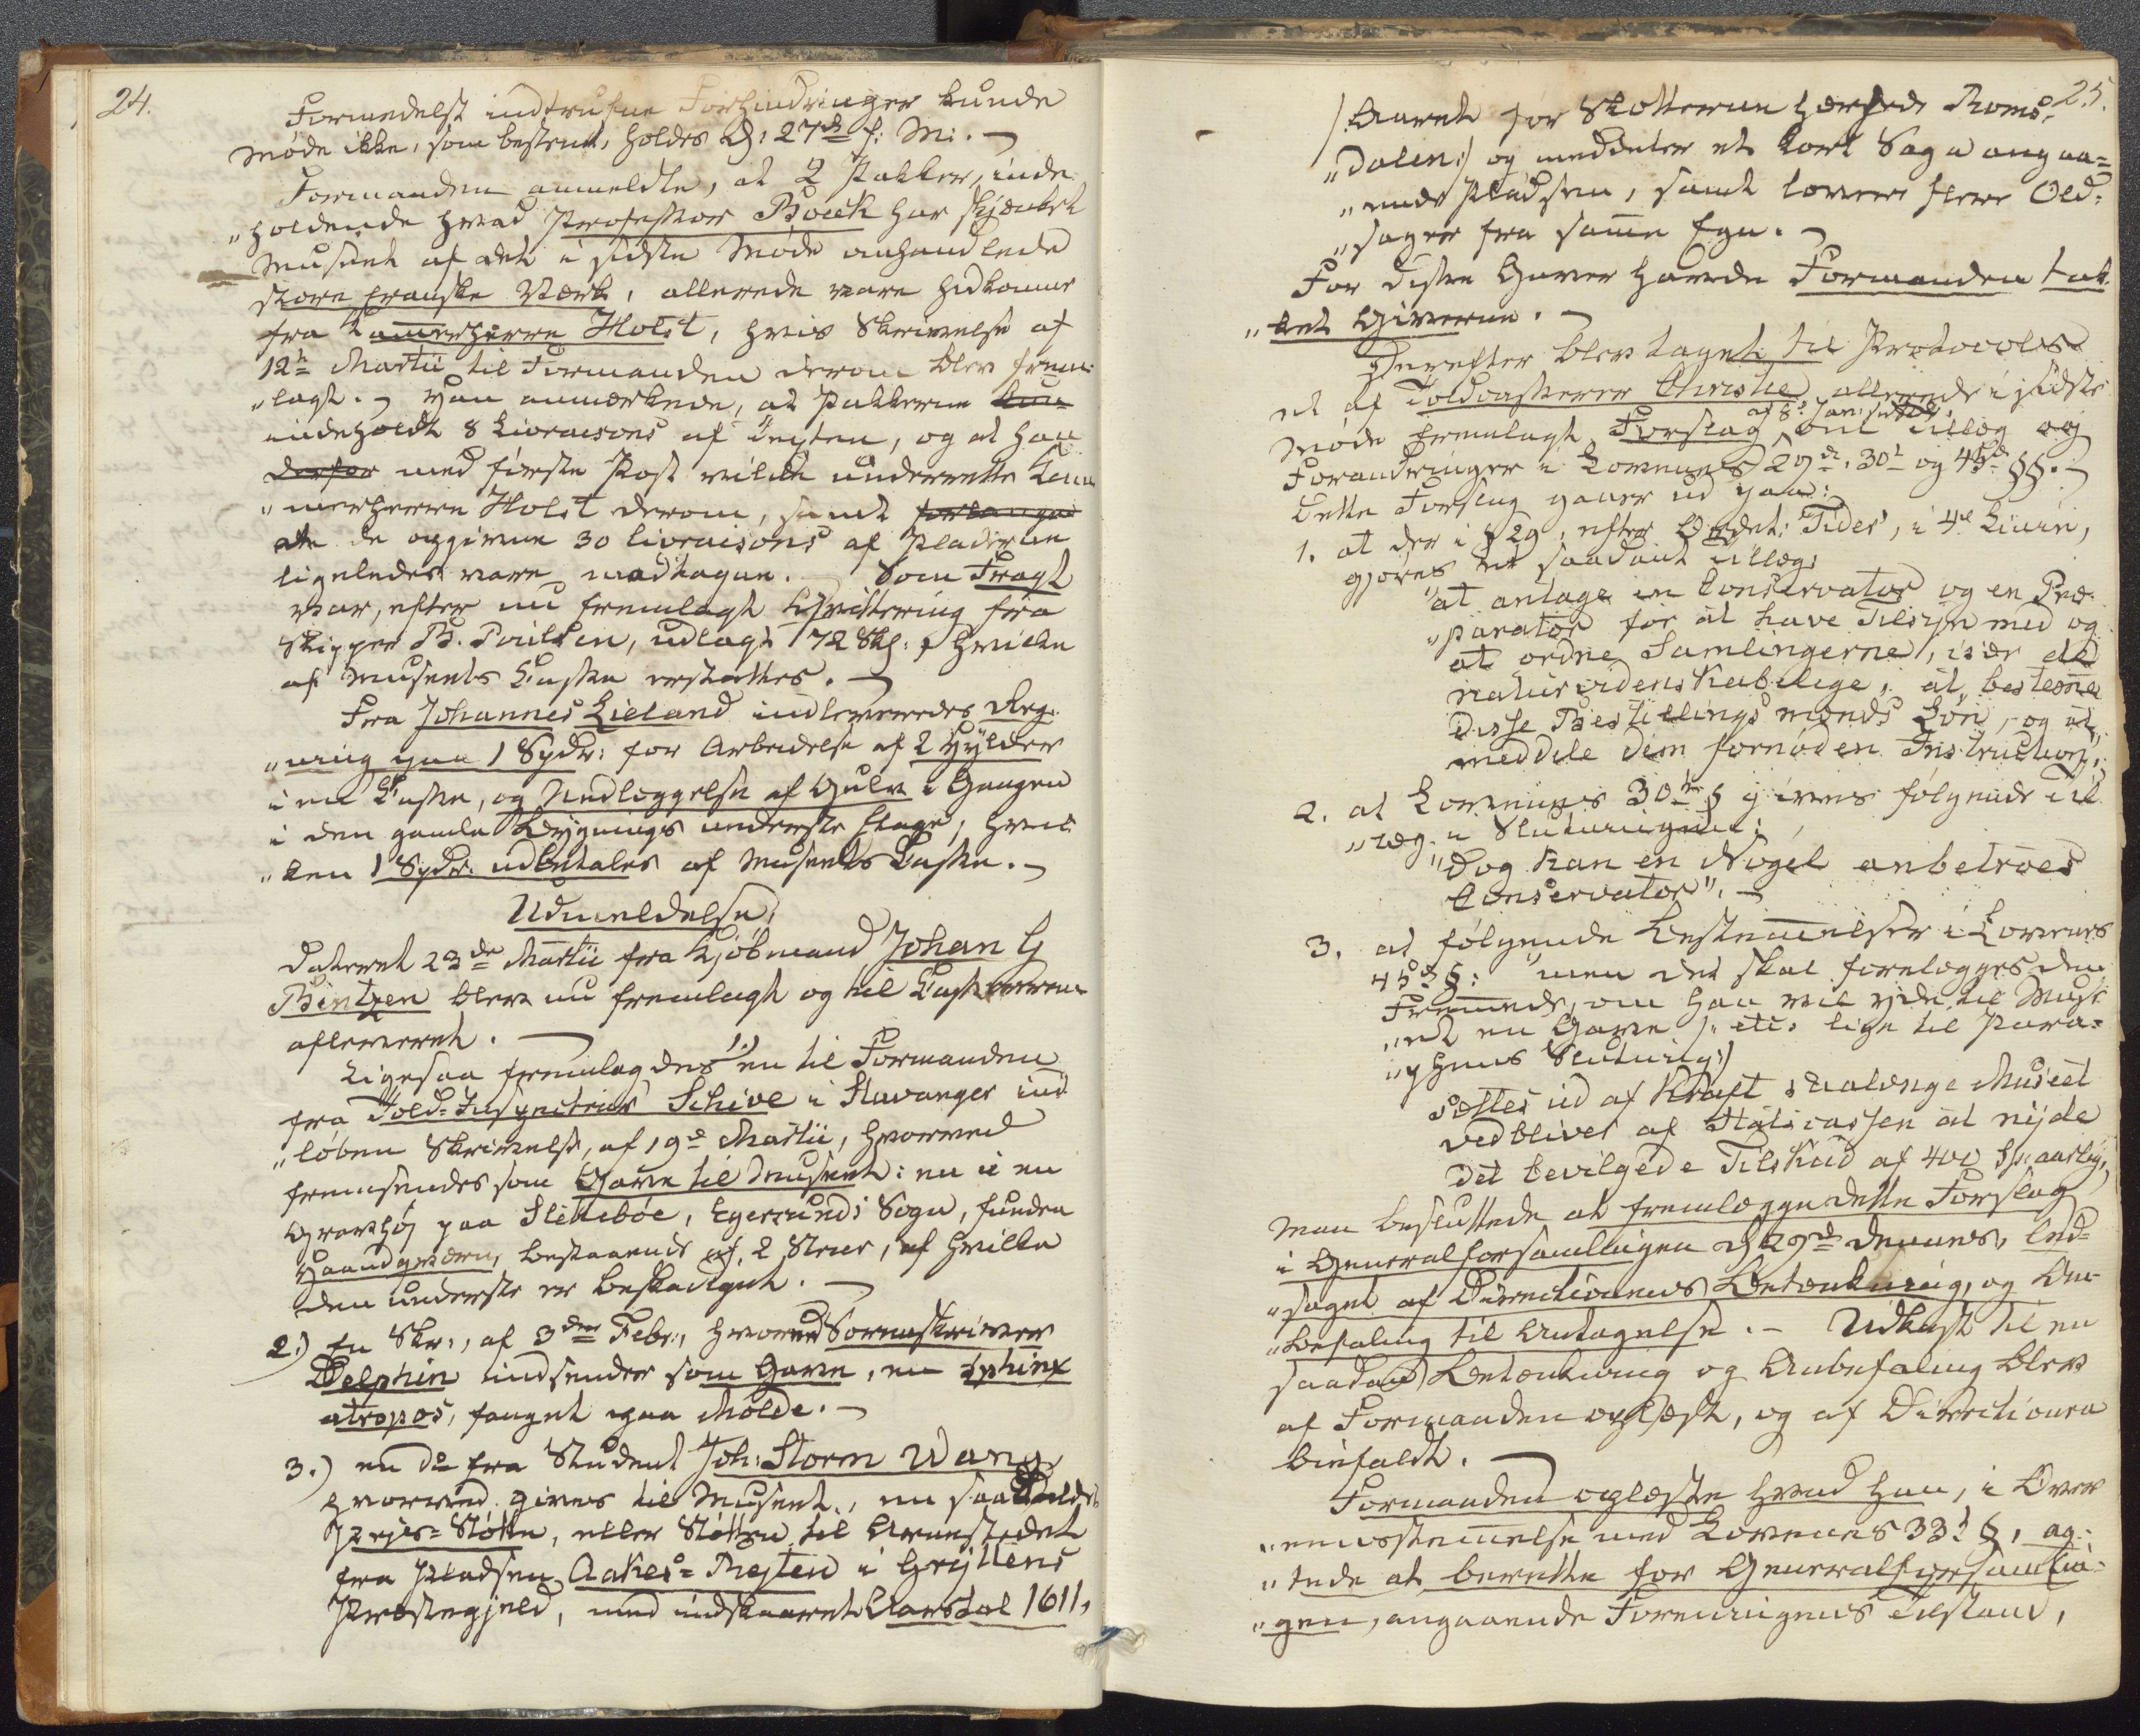 24.
Formedelst indtrufne Forhindringer kunde
Møde ikke, som bestemt, holdes d: 27de f: M:. -
Formanden anmeldte, at 2 Pakker, inde-
„holdende hvad Professor Boeck har skjænket
Museet af det i sidste Møde anhandlede
store franske Værk, allerede vare hidkomne
fra Kammerherre Holst, hvis Skrivelse af
12te Martii til Formanden derom blev frem-
„lagt. - Han anmærkede, at Pakkerne kun
indeholdt 8 Livraisons af Texten, og at han
derfor med første Post vilde underrette Kam-
„merherre Holst derom, samt forlange
at de opgivne 30 livraisons af Pladerne
ligeledes vare modtagne. - Som Fragt
var, efter nu fremlagt Qvittering fra
Skipper B. Poulsen, udlagt 72 Sk: hvilke
af Museets Casse erstattes. -
Fra Johannes Lieland indleveredes Reg-
„ning paa 1 Spdr: for Arbeidelse af 2 Hylder
i en Casse, og Nedlæggelse af Gulv i Gangen
i den gamle Bygnings underste Etage, hvil-
„ken 1 Spdr. udbetales af Museets Casse. -
Udmeldelse,
dateret 23de Martii fra Kjøbmand Johan G
Bentzen blev nu fremlagt og til Cassereren
afleveret. -
Ligesaa fremlagdes 1.) en til Formanden
fra Told-Inspecteur Schive i Stavanger ind-
„løben Skrivelse, af 19de Martii, hvorved
fremsendes som Gave til Museet: en i en
Gravhøj paa Slettebøe, Egersunds Sogn, funden
Haandqværn, bestaaende af 2 Stene, af hvilke
den underste er beskadiget. -
2.) En Skr:, af 3die Febr:, hvorved Sorenskriver
Delphin indsender som Gave, en Sphinx
atropos, fanget paa Molde. -
3.) en do fra Student Joh: Storm Wang
hvorved gives til Museet, en saakaldet
Pejs-Støtte, eller Støtten til Arnestedet
fra Pladsen Aakes-Mejten i Gryttens
Præstegjeld, med indskaaret Aarstal 1611,
25.
/: Aaret før Skotterne hærjede Roms-
„dalen:/ og meddeler et kort Sagn angaa-
„ende Pladsen, samt lover flere Old-
„sager fra samme Egn. -
For disse Gaver havde Formanden tak-
„ket Giverne. -
Derefter blev taget til Protocols
et af Toldcasserer Christie allerede i sidste
af 8: Jan: sidstl:
Møde fremlagt Forslag om Tillæg og
Forandringer i Lovenes 29de, 30te og 45de §§. -
Dette Forslag gaaer ud paa:
1. at der i § 29, efter Ordet: Tider, i 4de Linie,
gjøres et saadant Tillæg:
"at antage en Conservator og en Præ-
„parator for at have Tilsyn med og
at ordne Samlingerne, især de
naturvidenskabelige, at bestemme
disse Bestillingsmænds Løn, og at
meddele dem fornøden Instruction".
2. at Lovenes 30te § gives følgende Til-
„læg i Slutningen:
"Dog kan en Nøgel anbetroes
Conservator". -
3. at følgende Bestemmelser i Lovenes
45de §: "men det skal forelægges den
Fremmede, om han vil yde til Muse-
„et en Gave /: etc. lige til Para-
„phens Slutning:/
sættes ud af Kraft saalænge Museet
vedbliver af Statscassen at nyde
det bevilgede Tilskud af 400 Sp: aarlig.
Man besluttede at fremlægge dette Forslag
i Generalforsamlingen d 29de dennes, led-
„saget af Directionens Betænkning, og An-
„befaling til Antagelse. - Udkast til en
saadan Betænkning og Anbefaling blev
af Formanden oplæst, og af Directionen
bifaldt. -
Formanden oplæste hvad han, i Over-
„ensstemmelse med Lovenes 33te §, ag-
„tede at berette for Generalforsamlin-
„gen, angaaende Foreningens Tilstand,